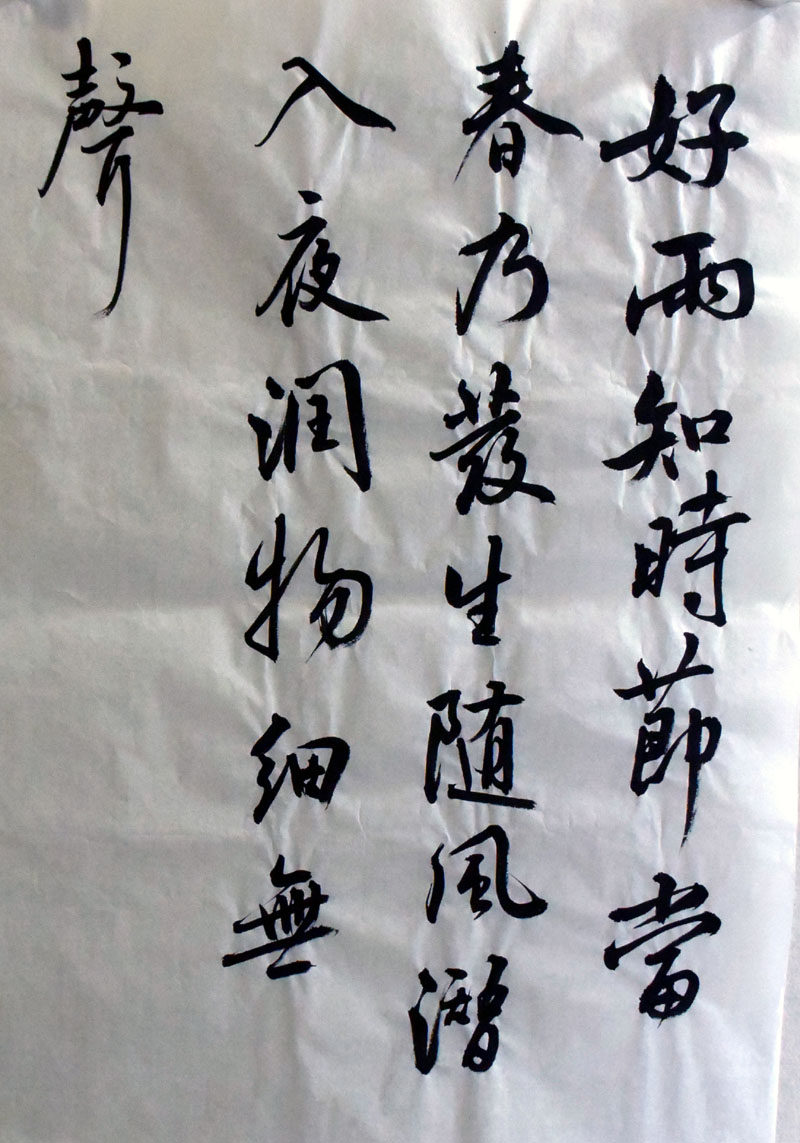 好雨知時節當
春乃發生随風潛
入夜润物细無
聲